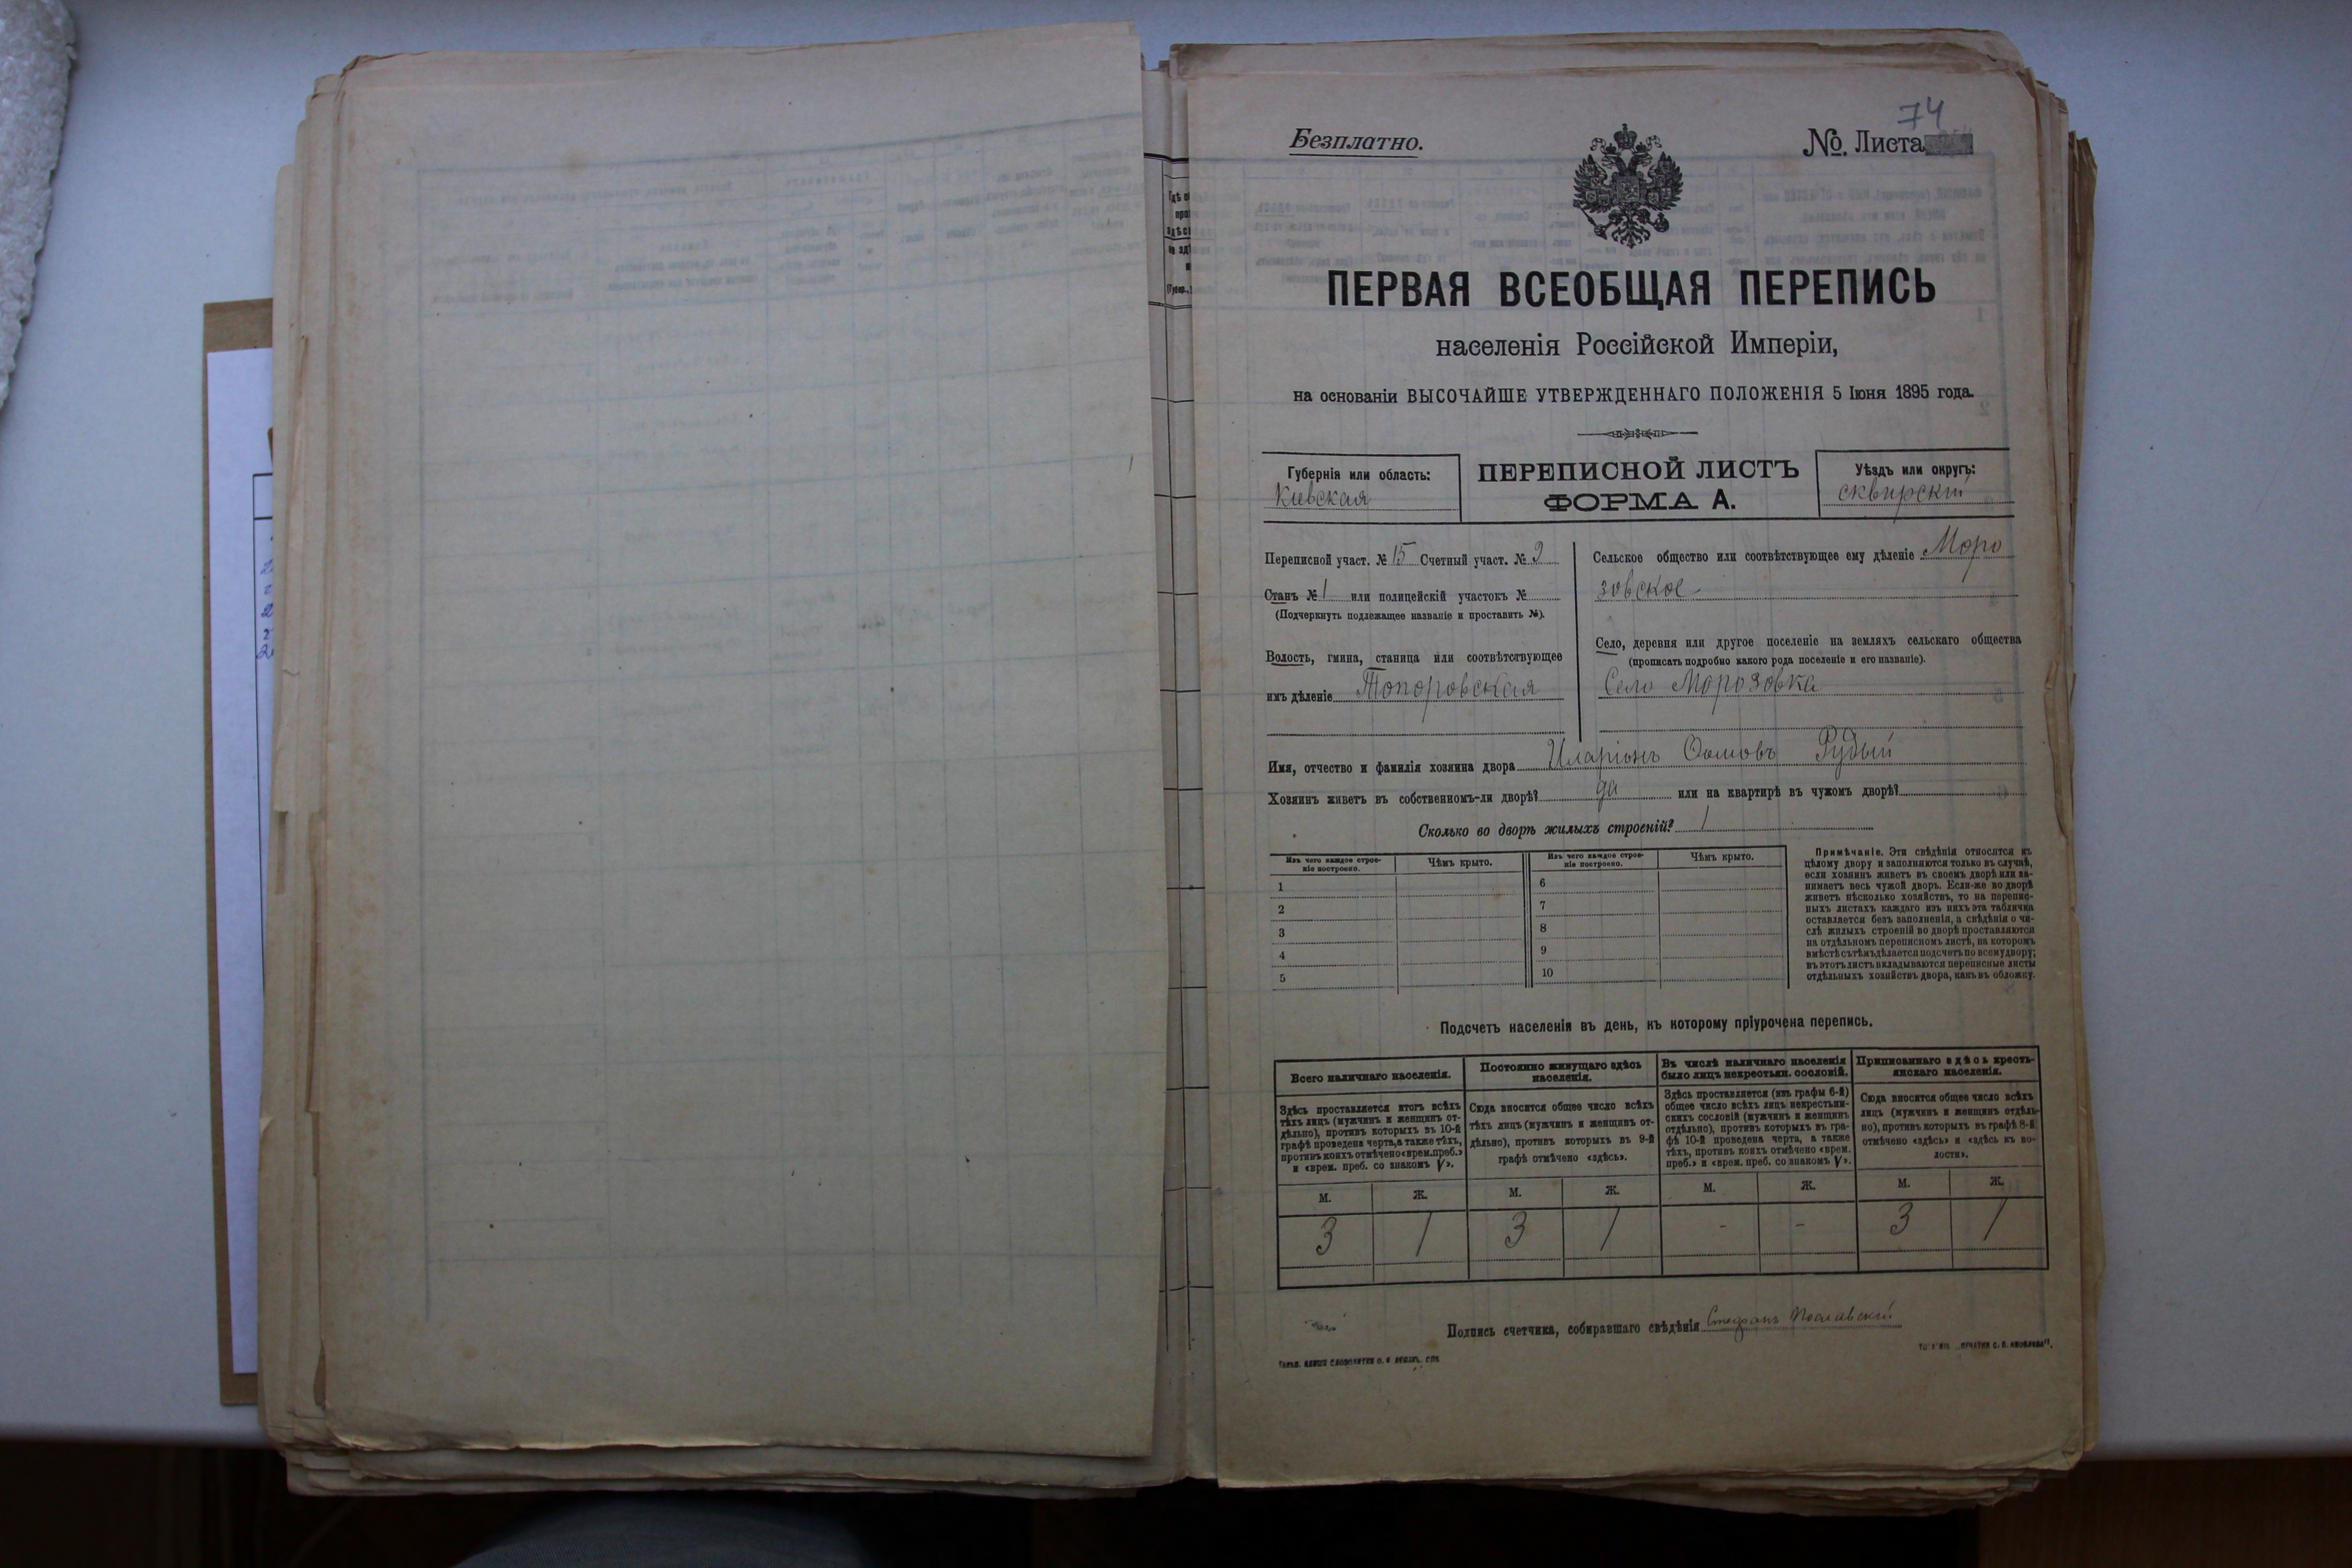 74
Безплатно.
№. Листа
ПЕРВАЯ ВСЕОБЩАЯ ПЕРЕПИСЬ
населенія Россійской Имперіи,
на основаніи ВЫСОЧАЙШЕ УТВЕРЖДЕННАГО ПОЛОЖЕНІЯ 5 Іюня 1895 года.
Губернія или область:
Киевская
ПЕРЕПИСНОЙ ЛИСТЪ
ФОРМА А.
Уѣздъ или округъ:
сквирскій
Переписной участ. № 15 Счетный участ. № 2
Станъ № 1 или полицейскій участокъ №
(Подчеркнуть подлежащее названіе и проставить №).
Волость, гмина, станица или соотвѣтствующее
имъ дѣленіе Топоровская
Сельское общество или соотвѣтствующее ему дѣленіе Моро
зовское
Село, деревня или другое поселеніе на земляхъ сельскаго общества
(прописать подробно какого рода поселеніе и его названіе).
Село Морозовка
Имя, отчество и фамилія хозяина двора Иларіонъ Ѳомовъ Рудый
Хозяинъ живетъ въ собственномъ-ли дворѣ? да или на квартирѣ въ чужомъ дворѣ?
Сколько во дворѣ жилыхъ строеній? 1
Изъ чего каждое строе-
ніе построено.
Чѣмъ крыто.
Изъ чего каждое строе-
ніе построено.
Чѣмъ крыто.
1
2
3
4
5
6
7
8
9
10
Примѣчаніе. Эти свѣдѣнія относятся къ
цѣлому двору и заполняются только въ случаѣ,
если хозяинъ живетъ въ своемъ дворѣ или за-
нимаетъ весь чужой дворъ. Если-же во дворѣ
живетъ нѣсколько хозяйствъ, то на перепис-
ныхъ листахъ каждаго изъ нихъ эта табличка
оставляется безъ заполненія, а свѣдѣнія о чи-
слѣ жилыхъ строеній во дворѣ проставляются
на отдѣльномъ переписномъ листѣ, на которомъ
вмѣстѣ съ тѣмъ дѣлается подсчетъ по всему двору;
въ этотъ листъ вкладываются переписные листы
отдѣльныхъ хозяйствъ двора, какъ въ обложку.
Подсчетъ населенія въ день, къ которому пріурочена перепись.
Всего наличнаго населенія.
Постоянно живущаго здѣсь
населенія.
Въ числѣ наличнаго населенія
было лицъ некрестьян. сословій.
Приписаннаго здѣсь кресть-
янскаго населенія.
Здѣсь проставляется итогъ всѣхъ
тѣхъ лицъ (мужчинъ и женщинъ от-
дѣльно), противъ которыхъ въ 10-й
графѣ проведена черта, а также тѣхъ,
противъ коихъ отмѣчено «врем. преб.»
и «врем. преб. со знакомъ V».
Сюда вносится общее число всѣхъ
тѣхъ лицъ (мужчинъ и женщинъ от-
дѣльно), противъ которыхъ въ 9-й
графѣ отмѣчено «здѣсь».
Здѣсь проставляется (изъ графы 6-й)
общее число всѣхъ лицъ некрестьян-
скихъ сословій (мужчинъ и женщинъ
отдѣльно), противъ которыхъ въ гра-
фѣ 10-й проведена черта, а также
тѣхъ, противъ коихъ отмѣчено «врем.
преб.» и «врем. преб. со знакомъ V».
Сюда вносится общее число всѣхъ
лицъ (мужчинъ и женщинъ отдѣль-
но), противъ которыхъ въ графѣ 8-й
отмѣчено «здѣсь» и «здѣсь къ во-
лости».
М. Ж. М. Ж. М. Ж. М. Ж.
3 1 3 1 - - 3 1
Подпись счетчика, собиравшаго свѣдѣнія Стефанъ